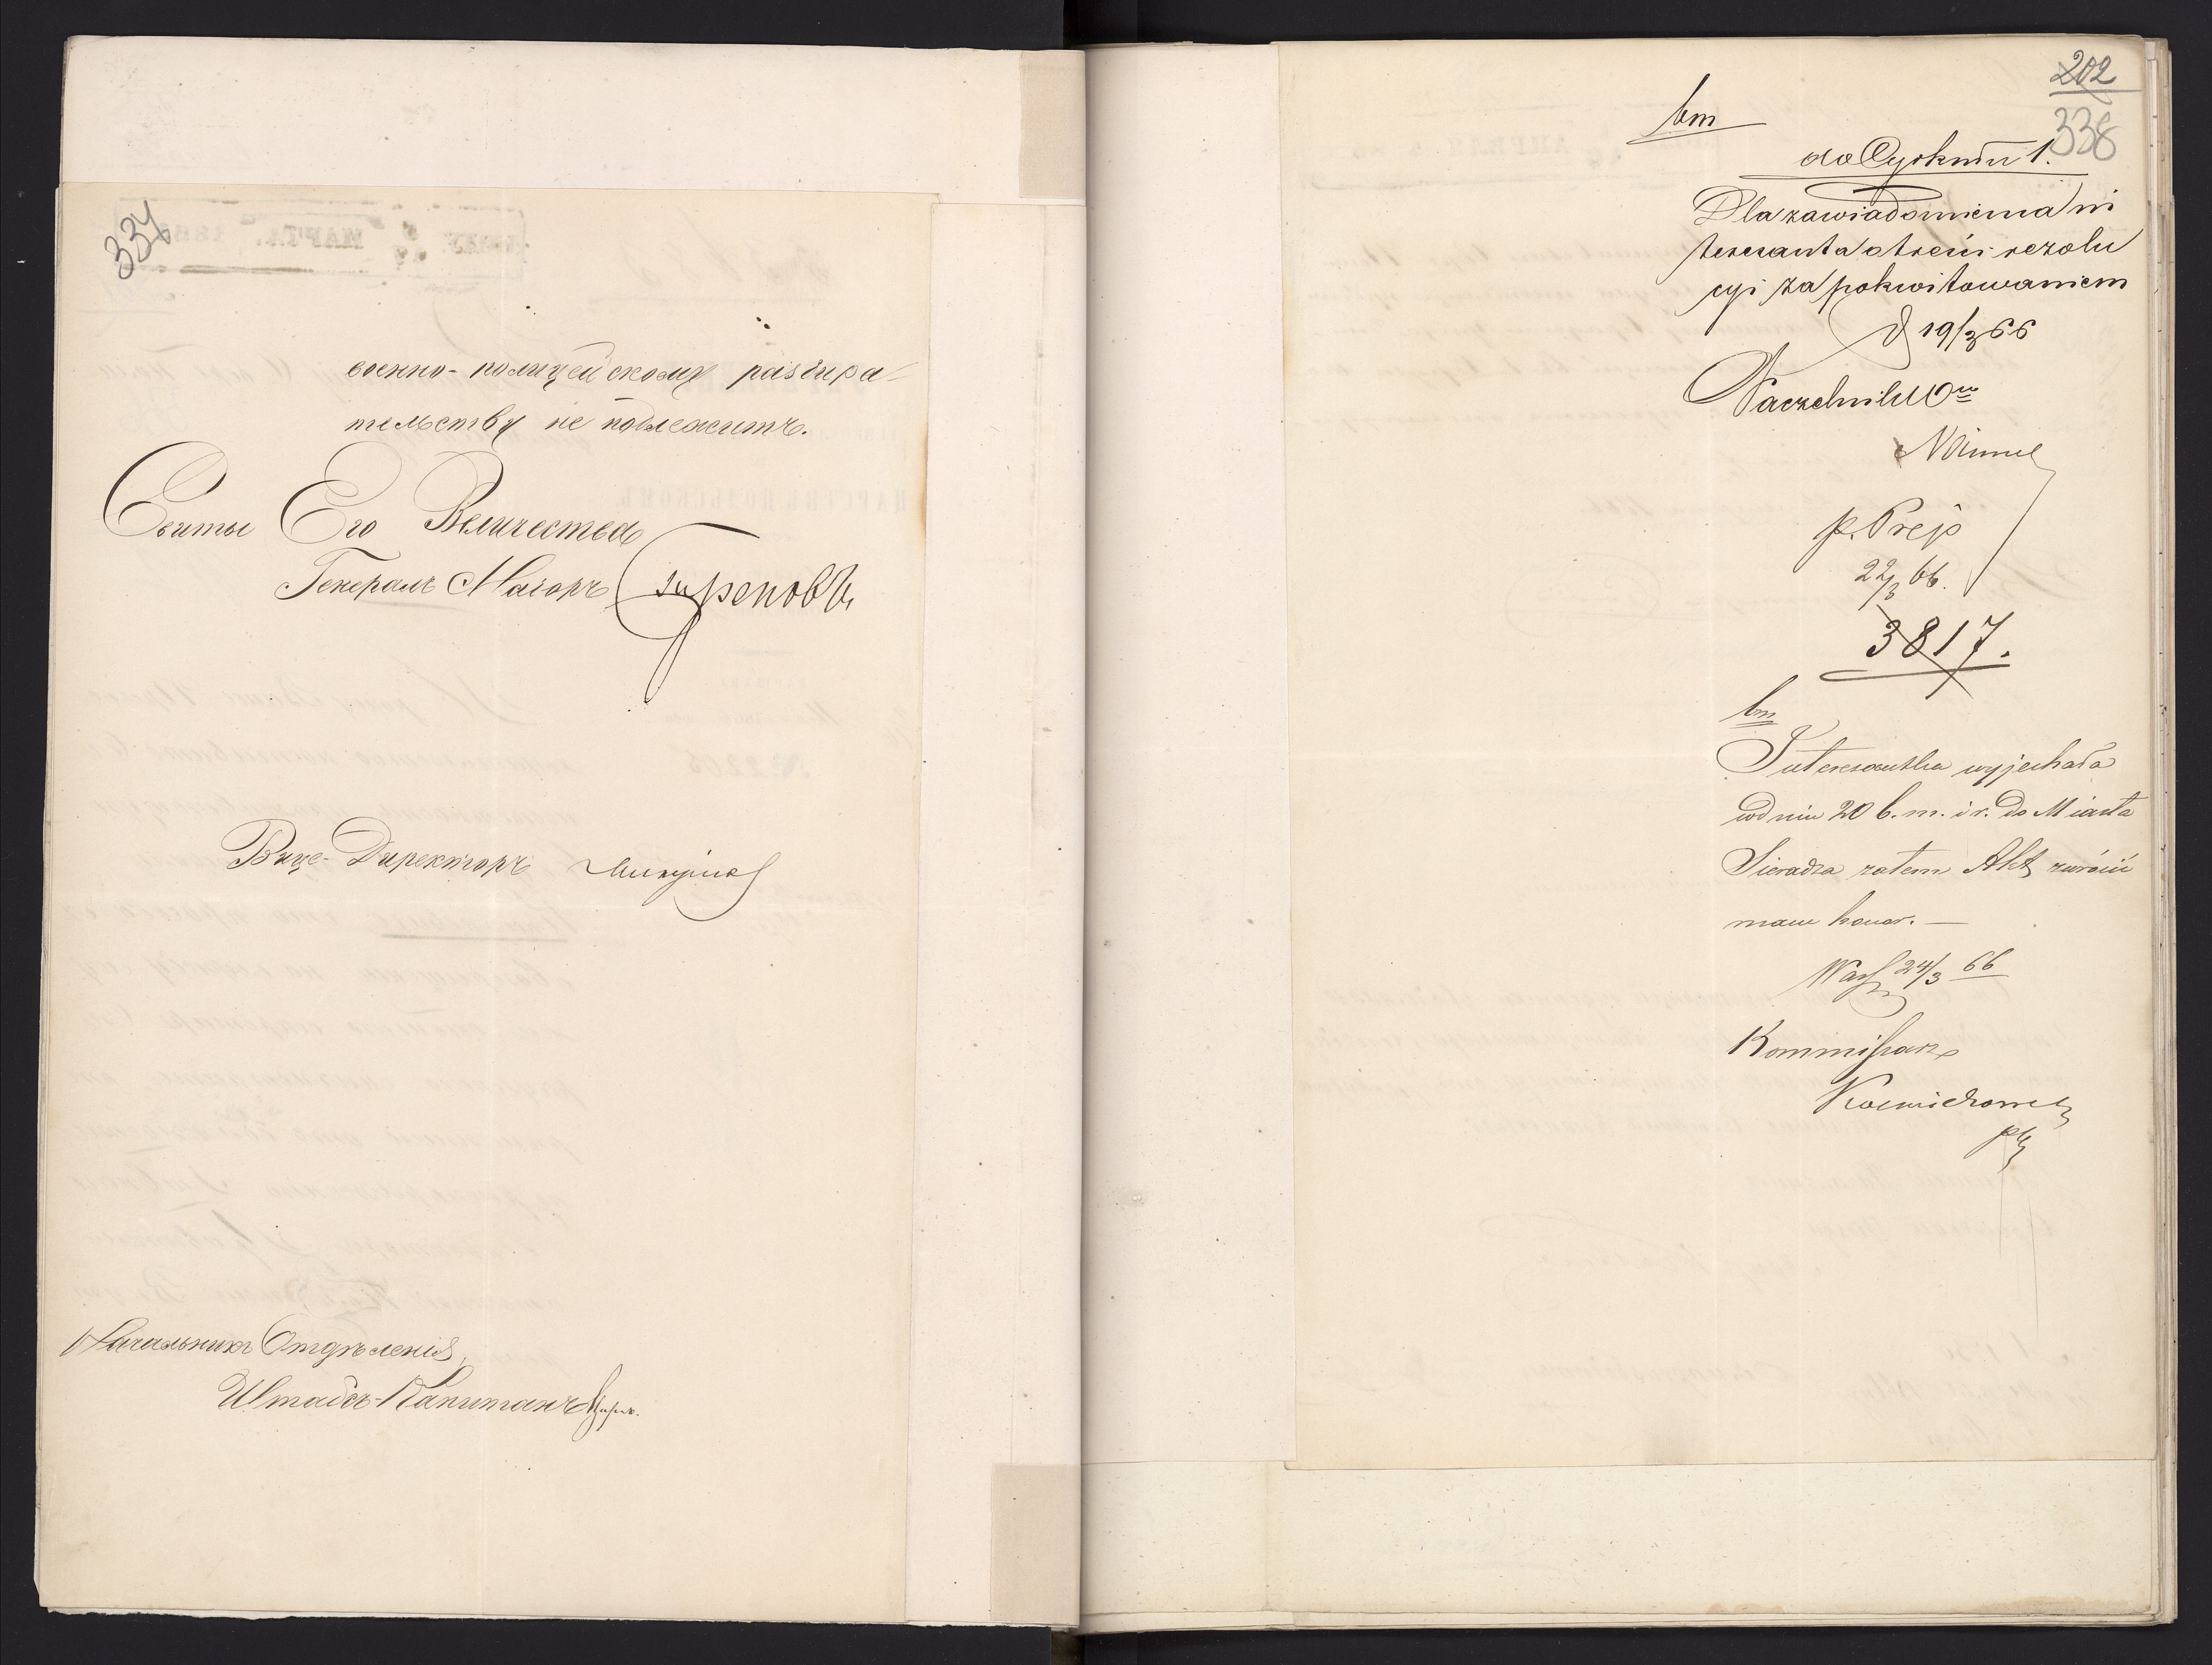 334
военно-полицейскому разбира-
тельству не подлежитъ.
Свиты Его Величества
Генералъ Маіоръ
Вице-Директоръ
Начальникъ Отдѣленія,
Штабсъ-Капитанъ
202
338
bm
do Cyrkułu 1.
Dla zawiadomienia in
teresanta o treści rezolu
cyi za pokwitowaniem
d 19/3 66
Naczelnik
p. Prejs
22/3 66.
3817.
bm
Interesantka wyjechała
w dniu 20 b. m. i r. do Miasta
Sieradza zatem Akt zwrócić
mam honor. —
24/3 66
Kommissarz